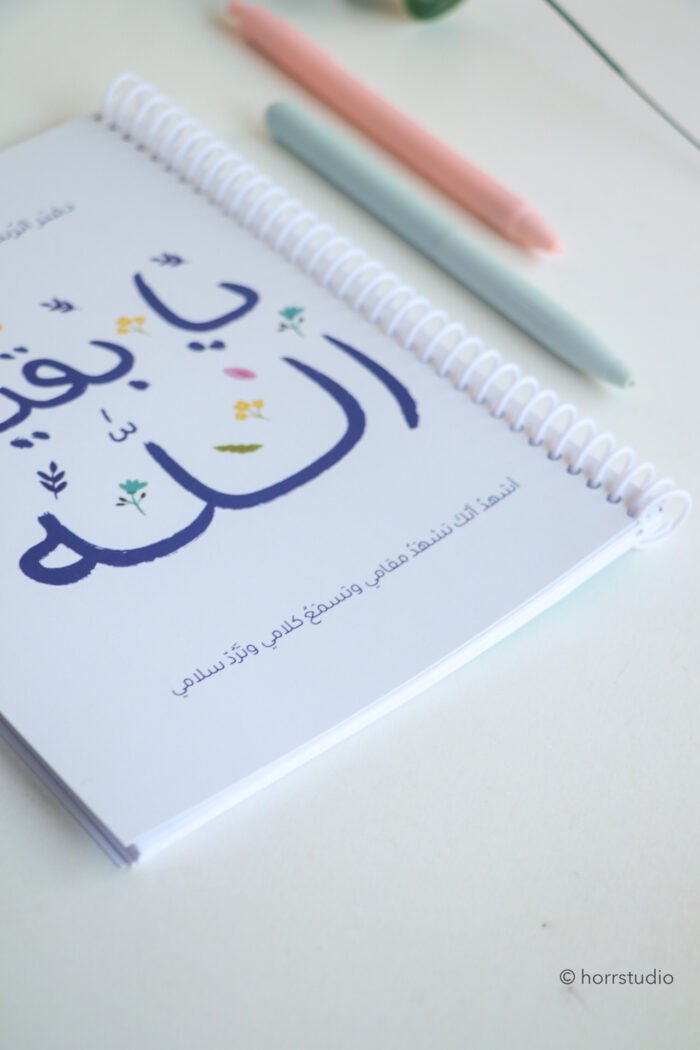 دفتر
يا بقيـ
الله
أشهدُ أنّكَ تشهدُ مقامي وتسمَعُ كلامي وتَرُدّ سلامي
© horrstudio